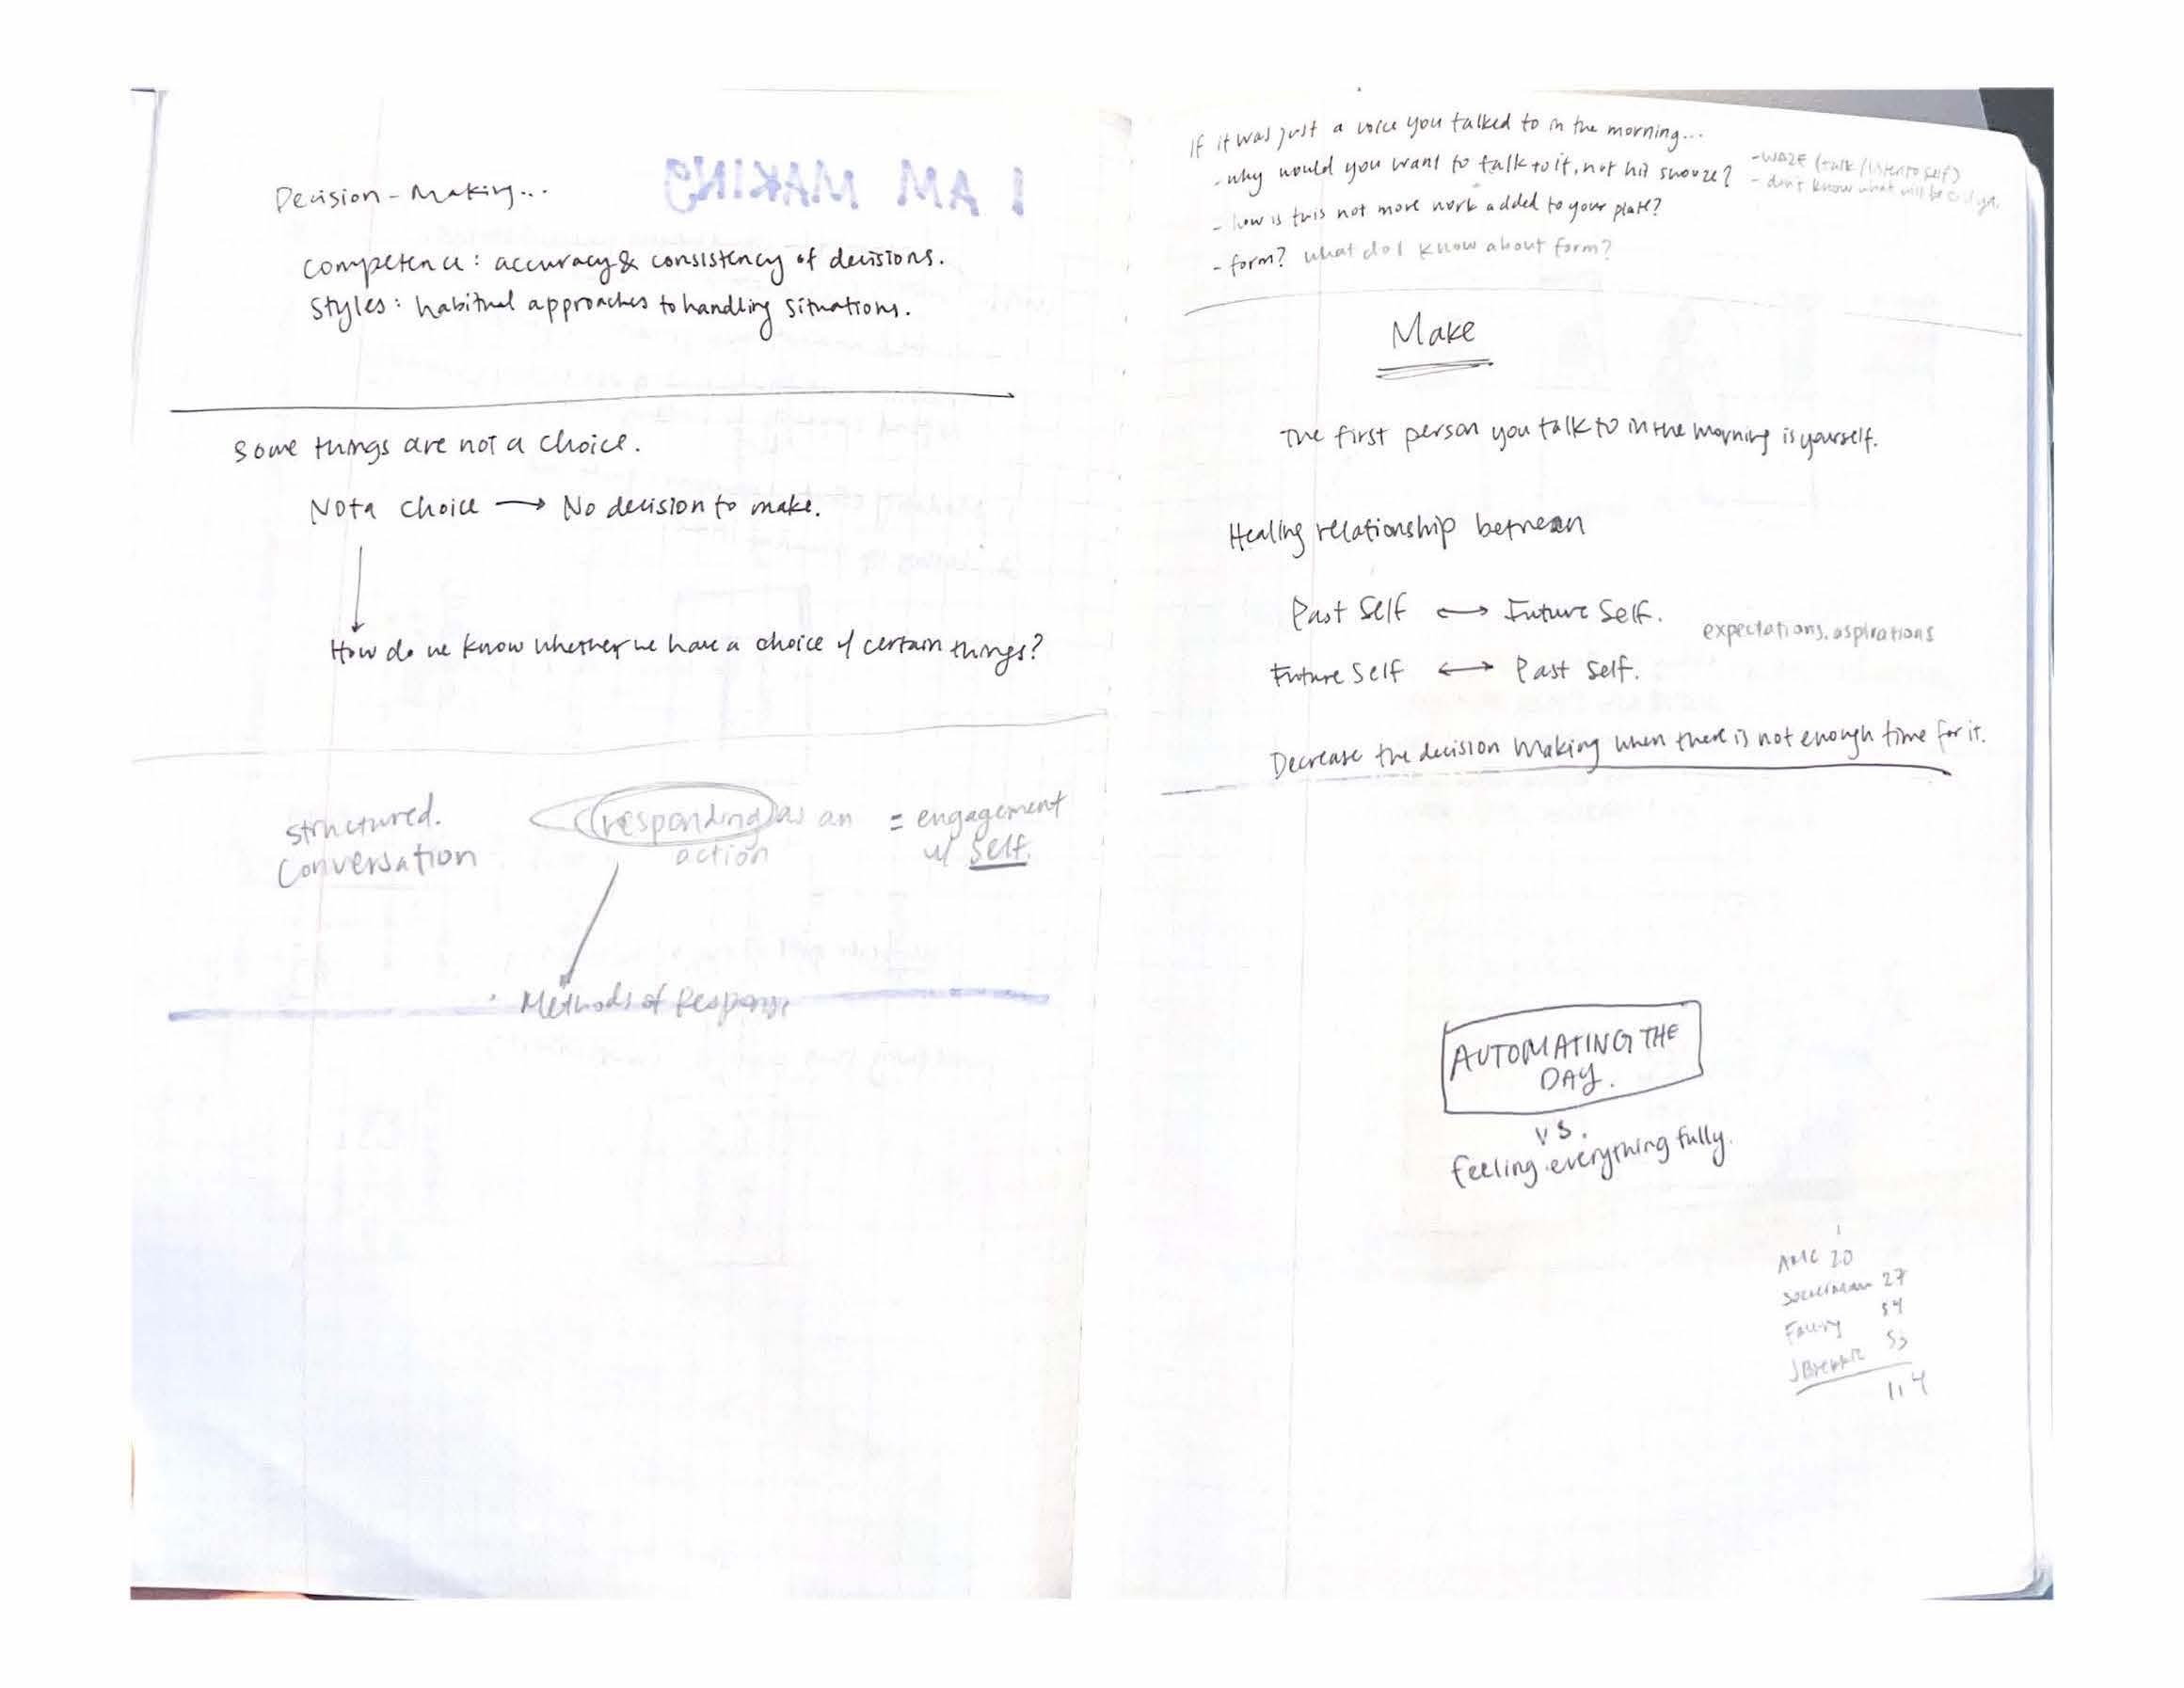 I AM MAKING
Decision-Making...
Competence: accuracy & consistency of decisions.
Styles: habitual approaches to handling situations.
Some things are not a choice.
Not a choice → No decision to make.
How do we know whether we have a choice of certain things?
structured.
conversation
responding as an
action
= engagement
w/ Self.
Methods of Response
If it was just a voice you talked to in the morning...
- why would you want to talk to it, not hit snooze?
- WAZE (talk/listen to self)
- don't know what will be
- how is this not more work added to your plate?
- form? what do I know about form?
Make
The first person you talk to in the morning is yourself.
Healing relationship between
Past Self ↔ Future Self.
expectations, aspirations
Future Self ↔ Past Self.
Decrease the decision making when there is not enough time for it.
AUTOMATING THE
DAY.
vs.
feeling everything fully.
20
27
54
53